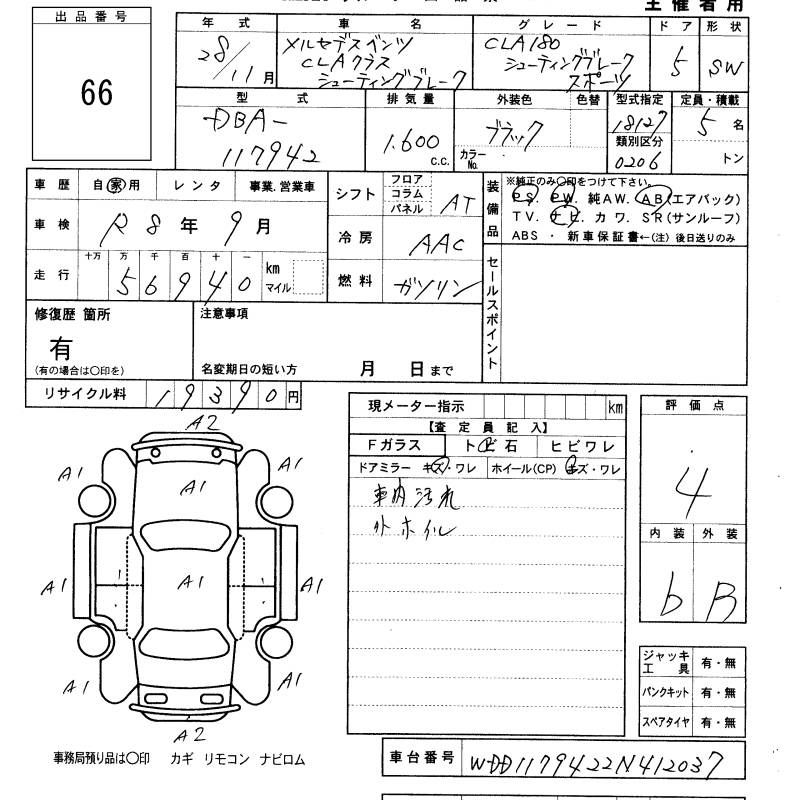 主催者用
出品番号
66
年式 車名 グレード ドア 形状
28/11月 メルセデスベンツ CLAクラス シューティングブレーク CLA180 シューティングブレーク スポーツ 5 SW
型式 排気量 外装色 色替 型式指定 定員・積載
DBA-117942 1.600 c.c. ブラック カラーNo. 18127 5名
類別区分
0206 トン
車歴 自家用 レンタ 事業.営業車
車検 R8年9月
走行 十万 万 千 百 十 一 km マイル
56940
シフト フロア コラム パネル AT
冷房 AAC
燃料 ガソリン
装備品 ※純正のみ〇印をつけて下さい。
PS. PW. 純AW. AB(エアバック)
TV. ナビ. カワ. SR(サンルーフ)
ABS ・ 新車保証書←(注) 後日送りのみ
セールスポイント
修復歴 箇所
有
(有の場合は〇印を)
注意事項
名変期日の短い方 月 日まで
リサイクル料 19390円
A2
A1 A1
A1
A1 A1 A1
A1 A1
A2
事務局預り品は〇印 カギ リモコン ナビロム
現メーター指示 km
【査定員記入】
Fガラス トビ石 ヒビワレ
ドアミラー キズ・ワレ ホイール(CP) キズ・ワレ
車内汚れ
外ホイル
評価点
4
内装 外装
b B
ジャッキ工具 有・無
パンクキット 有・無
スペアタイヤ 有・無
車台番号 WDD1179422N412037